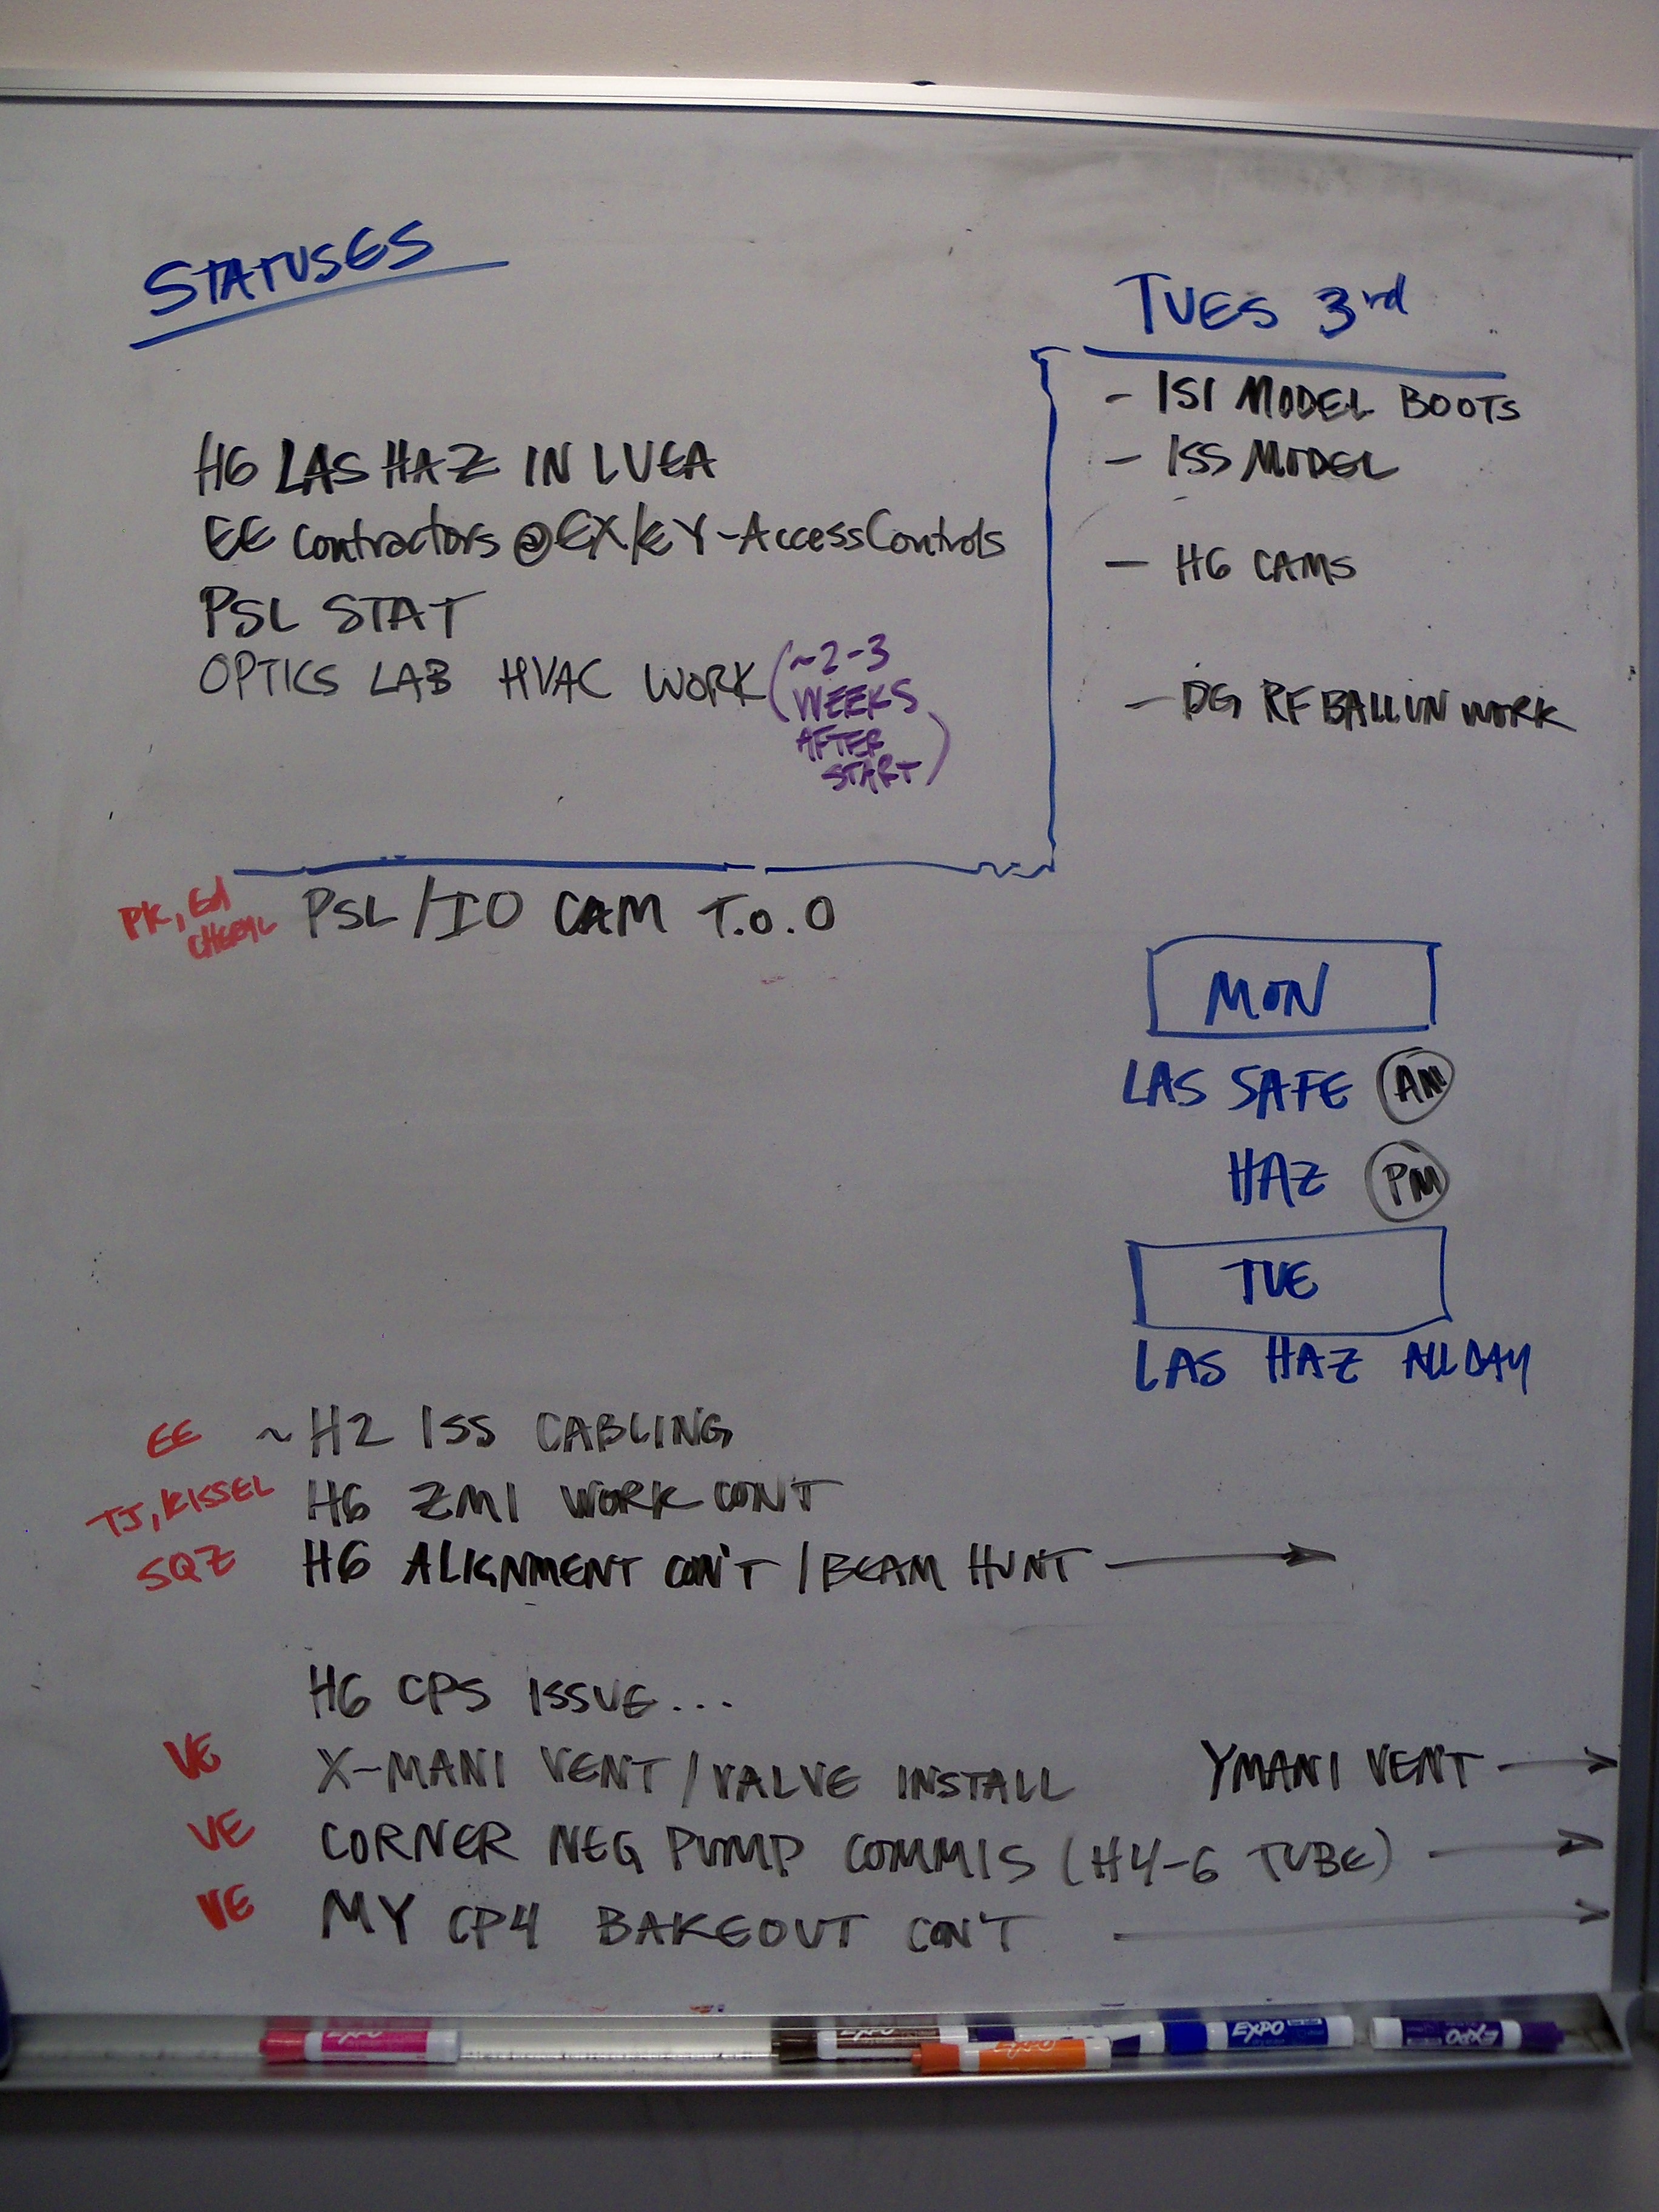 STATUSES
H6 LAS HAZ IN LVEA
EE Contractors @ EX/EY - Access Controls
PSL STAT
OPTICS LAB HVAC WORK (~2-3
WEEKS
AFTER
START)
TUES 3rd
- ISI MODEL BOOTS
- ISS MODEL
- H6 CAMS
- DG RF BALLUN WORK
PK, Ed
CHERYL
PSL/IO CAM T.O.O
MON
LAS SAFE AM
HAZ PM
TUE
LAS HAZ ALL DAY
EE ~ H2 ISS CABLING
TJ, KISSEL H6 ZM1 WORK CONT
SQZ H6 ALIGNMENT CON'T / BEAM HUNT
H6 CPS ISSUE...
VE X-MANI VENT / VALVE INSTALL YMANI VENT
VE CORNER NEG PUMP COMMIS (H4-6 TUBE)
VE MY CP4 BAKEOUT CON'T
EXPO
EXPO
EXPO
EXPO